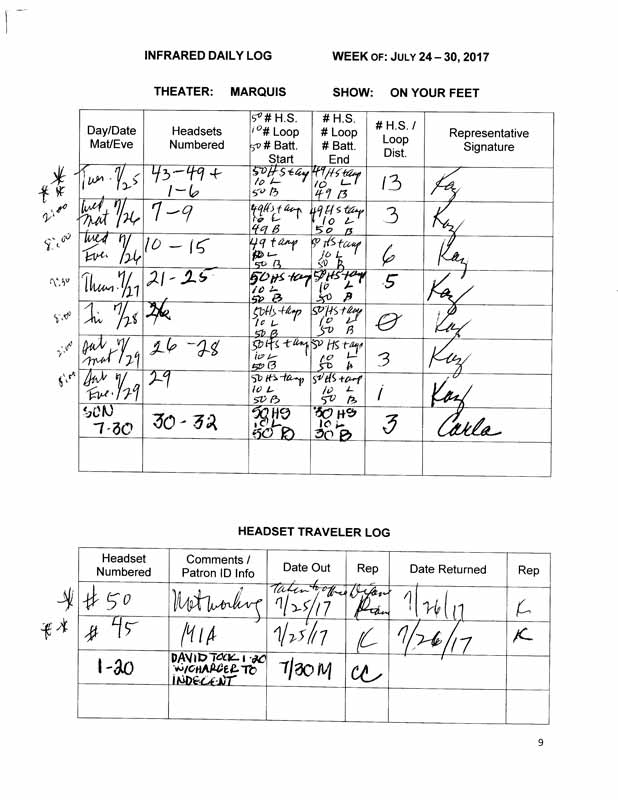 INFRARED DAILY LOG WEEK OF: JULY 24 – 30, 2017
THEATER: MARQUIS SHOW: ON YOUR FEET
Day/Date Mat/Eve Headsets Numbered 50 # H.S. 10 # Loop 50 # Batt. Start # H.S. # Loop # Batt. End # H.S. / Loop Dist. Representative Signature
** Tues. 7/25 43-49 + 1-6 50 HS tamp 10 L 50 B 49 HS tamp 10 L 49 B 13 Kay
2:00 Wed mat 7/26 7-9 49HS tamp 10 L 49 B 49 HS tamp 10 L 50 B 3 Kay
8:00 Wed Eve. 7/26 10 - 15 49 tamp 10 L 50 B HS tamp 10 L 50 B 6 Kay
7:30 Thurs. 7/27 21-25 50 HS tamp 10 L 50 B 50 HS tamp 10 L 50 B 5 Kay
8:00 Fri 7/28 50HS tamp 10 L 50 B 50 HS tamp 10 L 50 B 0 Kay
2:00 Sat mat 7/29 26 -28 50 HS tamp 10 L 50 B 50 HS tamp 10 L 50 B 3 Kay
8:00 Sat Eve. 7/29 29 50 HS tamp 10 L 50 B 50 HS tamp 10 L 50 B 1 Kay
SUN 7-30 30-32 50 HS 10 L 50 B 30 HS 10 L 30 B 3 Carla
HEADSET TRAVELER LOG
Headset Numbered Comments / Patron ID Info Date Out Rep Date Returned Rep
* # 50 Not working Taken to office 7/25/17 7/26/17 K
** # 45 MIA 7/25/17 K 7/26/17 K
1-20 DAVID TOOK 1-20 W/CHARGER TO INDECENT 7/30 M CC
9